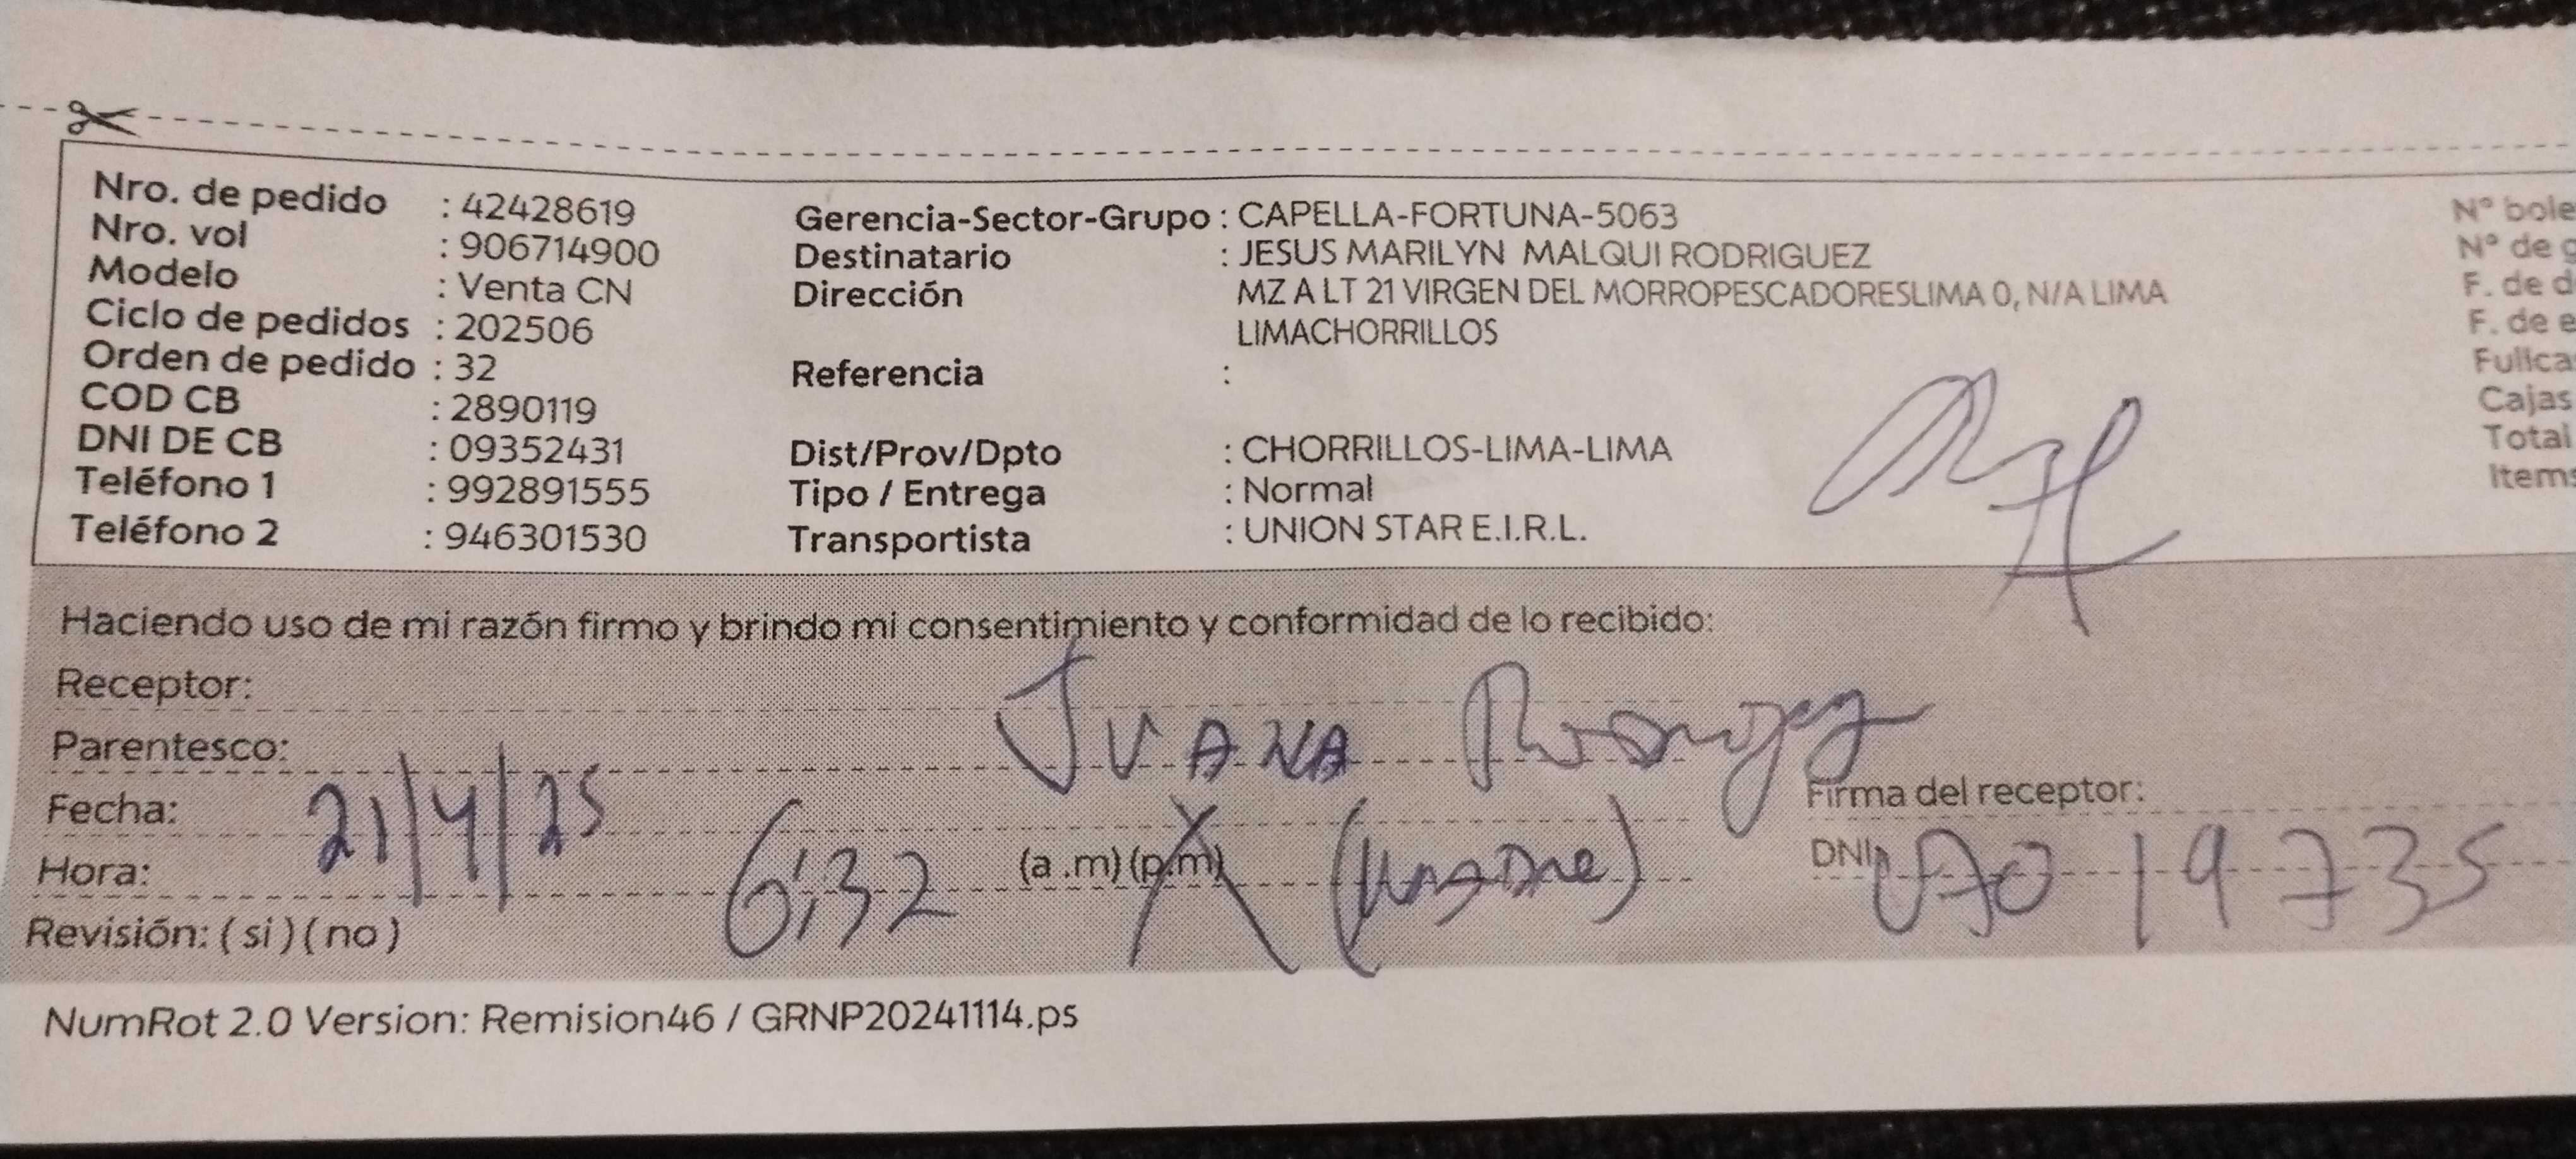 Nro. de pedido : 42428619
Nro. vol : 906714900
Modelo : Venta CN
Ciclo de pedidos : 202506
Orden de pedido : 32
COD CB : 2890119
DNI DE CB : 09352431
Teléfono 1 : 992891555
Teléfono 2 : 946301530
Gerencia-Sector-Grupo : CAPELLA-FORTUNA-5063
Destinatario : JESUS MARILYN MALQUI RODRIGUEZ
Dirección MZ A LT 21 VIRGEN DEL MORROPESCADORESLIMA 0, N/A LIMA
LIMACHORRILLOS
Referencia :
Dist/Prov/Dpto : CHORRILLOS-LIMA-LIMA
Tipo / Entrega : Normal
Transportista : UNION STAR E.I.R.L.
N° bole
N° de g
F. de d
F. de e
Fullca
Cajas
Total
Items
Haciendo uso de mi razón firmo y brindo mi consentimiento y conformidad de lo recibido:
Receptor:
JUANA
Parentesco:
Fecha: 21/4/25
Firma del receptor:
Hora: 6:32 (a .m) (p.m) (madre)
DNI: 07019735
Revisión: ( si ) ( no )
NumRot 2.0 Version: Remision46 / GRNP20241114.ps